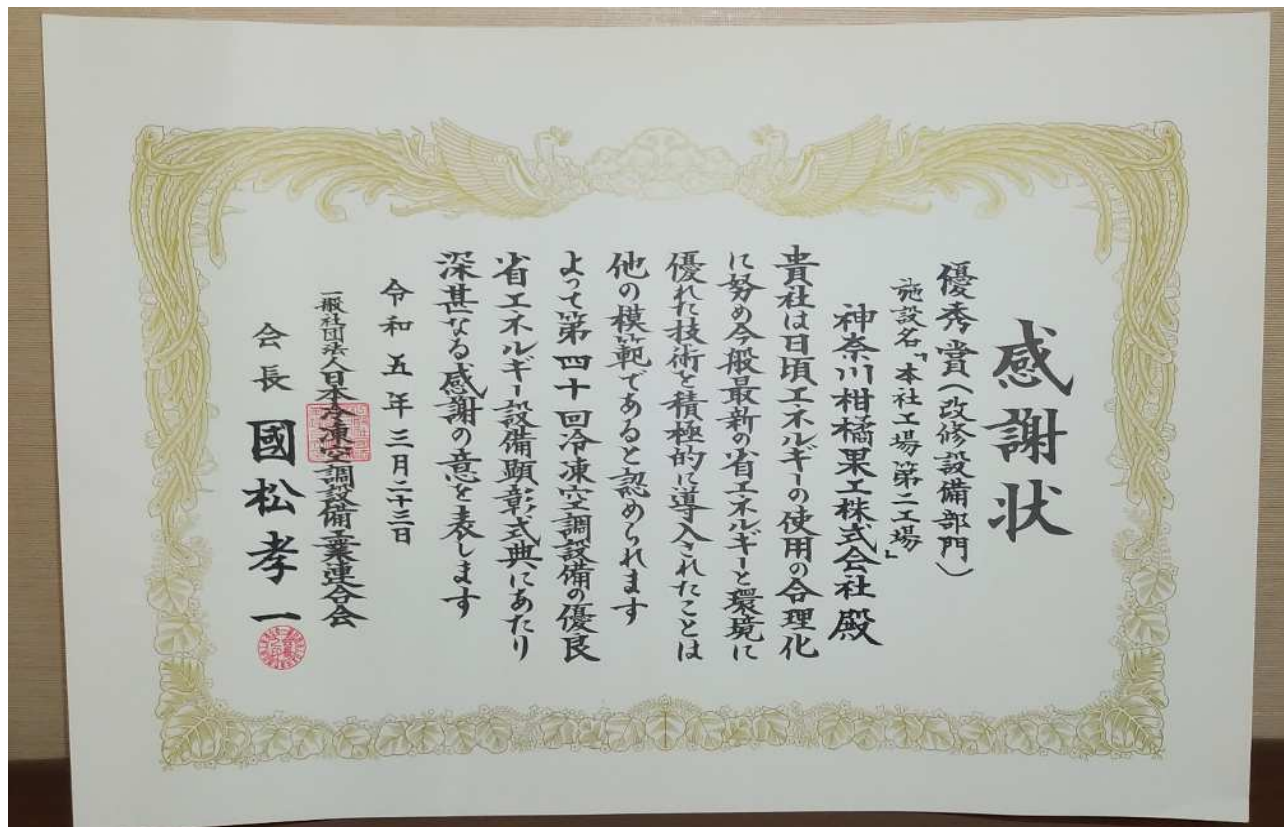 感謝状
優秀賞(改修設備部門)
施設名「本社工場第二工場」
神奈川柑橘果工株式会社 殿
貴社は日頃エネルギーの使用の合理化
に努め今般最新の省エネルギーと環境に
優れた技術を積極的に導入されたことは
他の模範であると認められます
よって第四十回冷凍空調設備の優良
省エネルギー設備顕彰式典にあたり
深甚なる感謝の意を表します
令和五年三月二十三日
一般社団法人日本冷凍空調設備工業連合会
会長 國松孝一